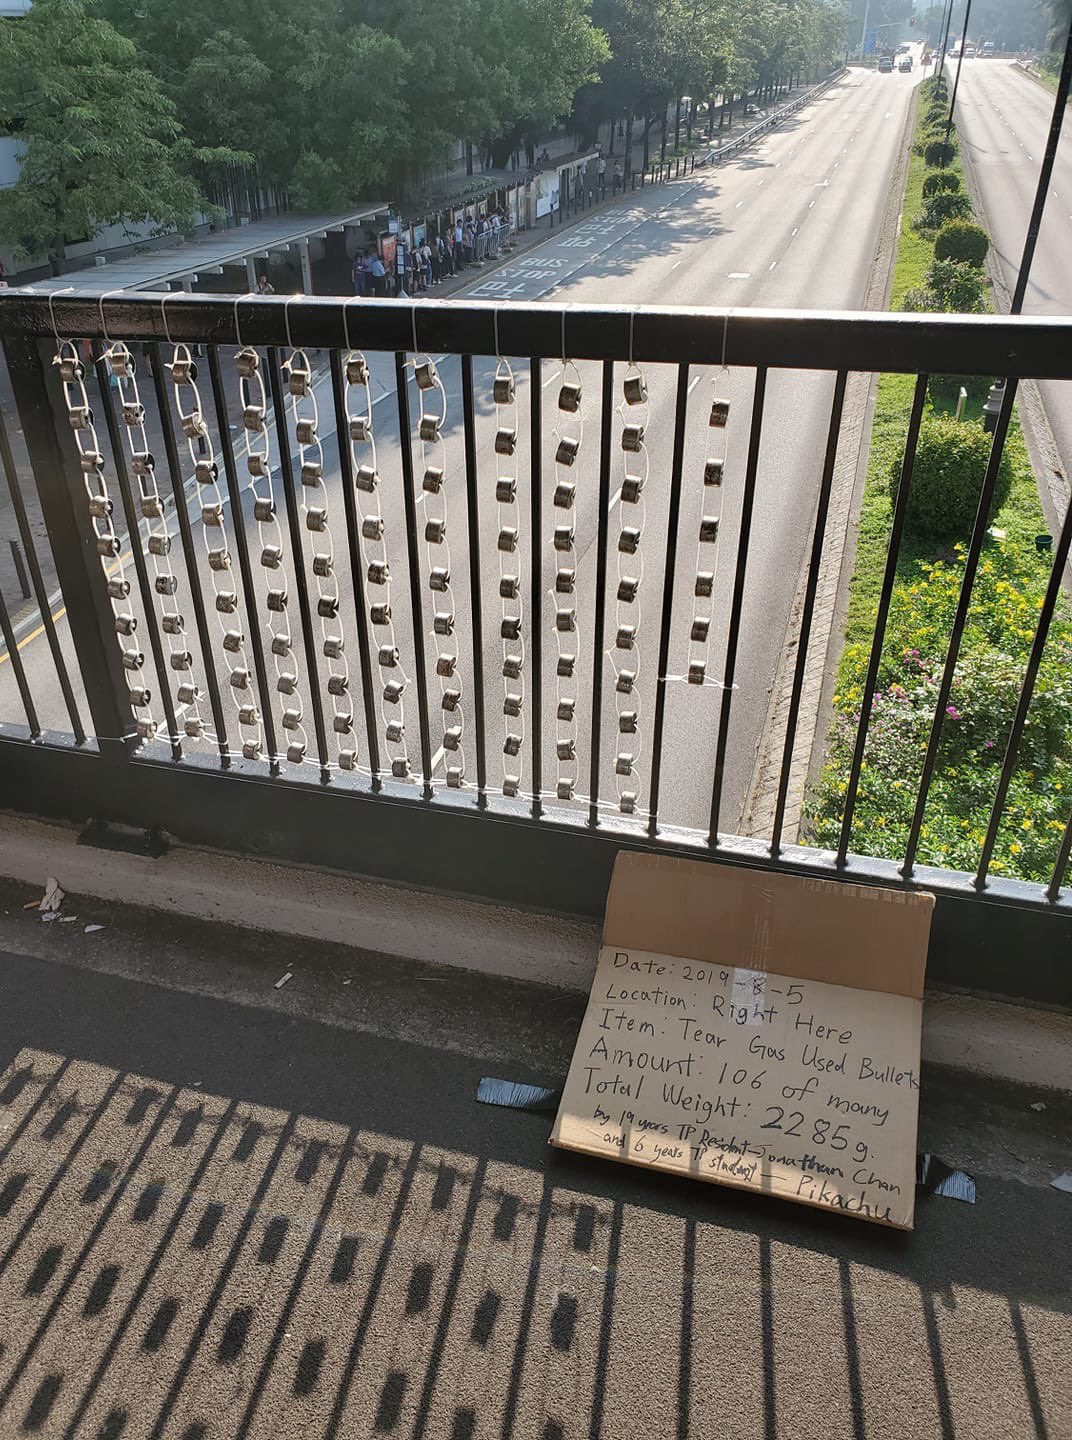 BUS
STOP
Date: 2019-8-5
Location: Right Here
Item: Tear Gas Used Bullets
Amount: 106 of many
Total Weight: 2285g.
by 19 years TP Resident - Jonathan Chan
and 6 years TP student — Pikachu